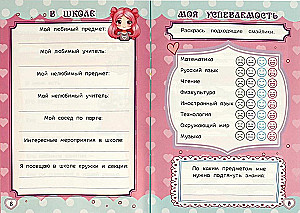 В ШКОЛЕ
Мой любимый предмет:
Мой любимый учитель:
Мой нелюбимый предмет:
Мой нелюбимый учитель:
Мой сосед по парте:
Интересные мероприятия в школе:
Я посещаю в школе кружки и секции:
6
МОЯ УСПЕВАЕМОСТЬ
Раскрась подходящие смайлики.
Математика
Русский язык
Чтение
Физкультура
Иностранный язык
Технология
Окружающий мир
Музыка
По каким предметам мне
нужно подтянуть знания: